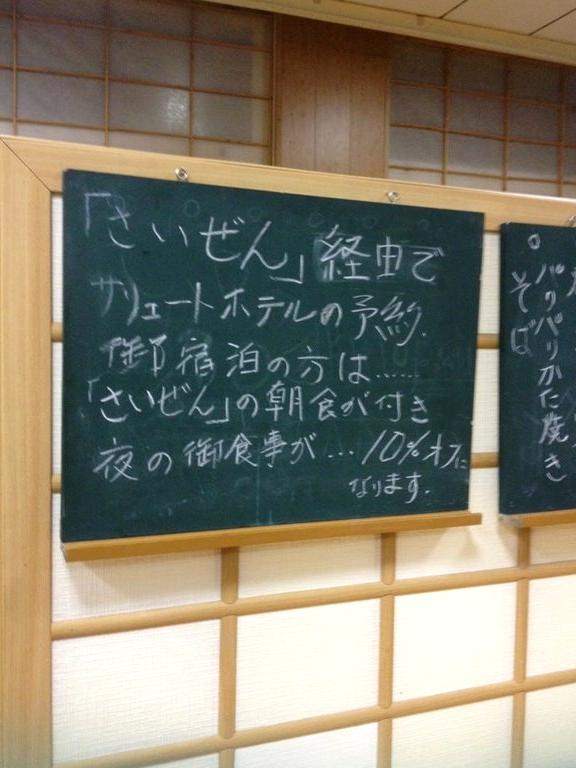 「さいぜん」経由で
サリュートホテルの予約.
御宿泊の方は……
「さいぜん」の朝食が付き
夜の御食事が…10%オフに
なります.
パリパリかた焼き
そば